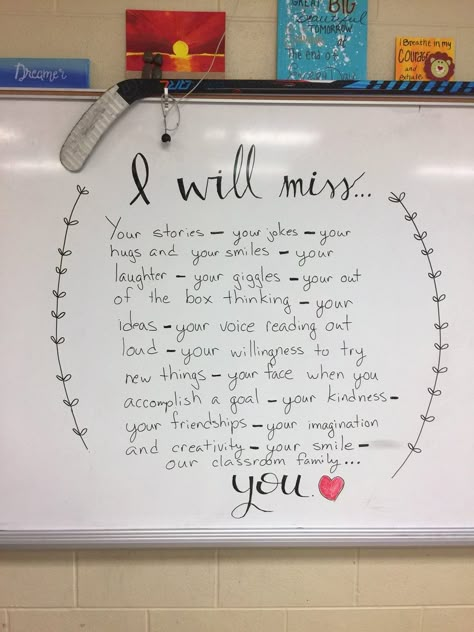 GREAT BIG
Beautiful
TOMORROW
at
the end of
Dreamer
I Breathe in my
Courage
and
exhale
I will miss...
Your stories – your jokes – your
hugs and your smiles – your
laughter – your giggles – your out
of the box thinking – your
ideas – your voice reading out
loud – your willingness to try
new things – your face when you
accomplish a goal – your kindness –
your friendships – your imagination
and creativity – your smile –
our classroom family...
you.